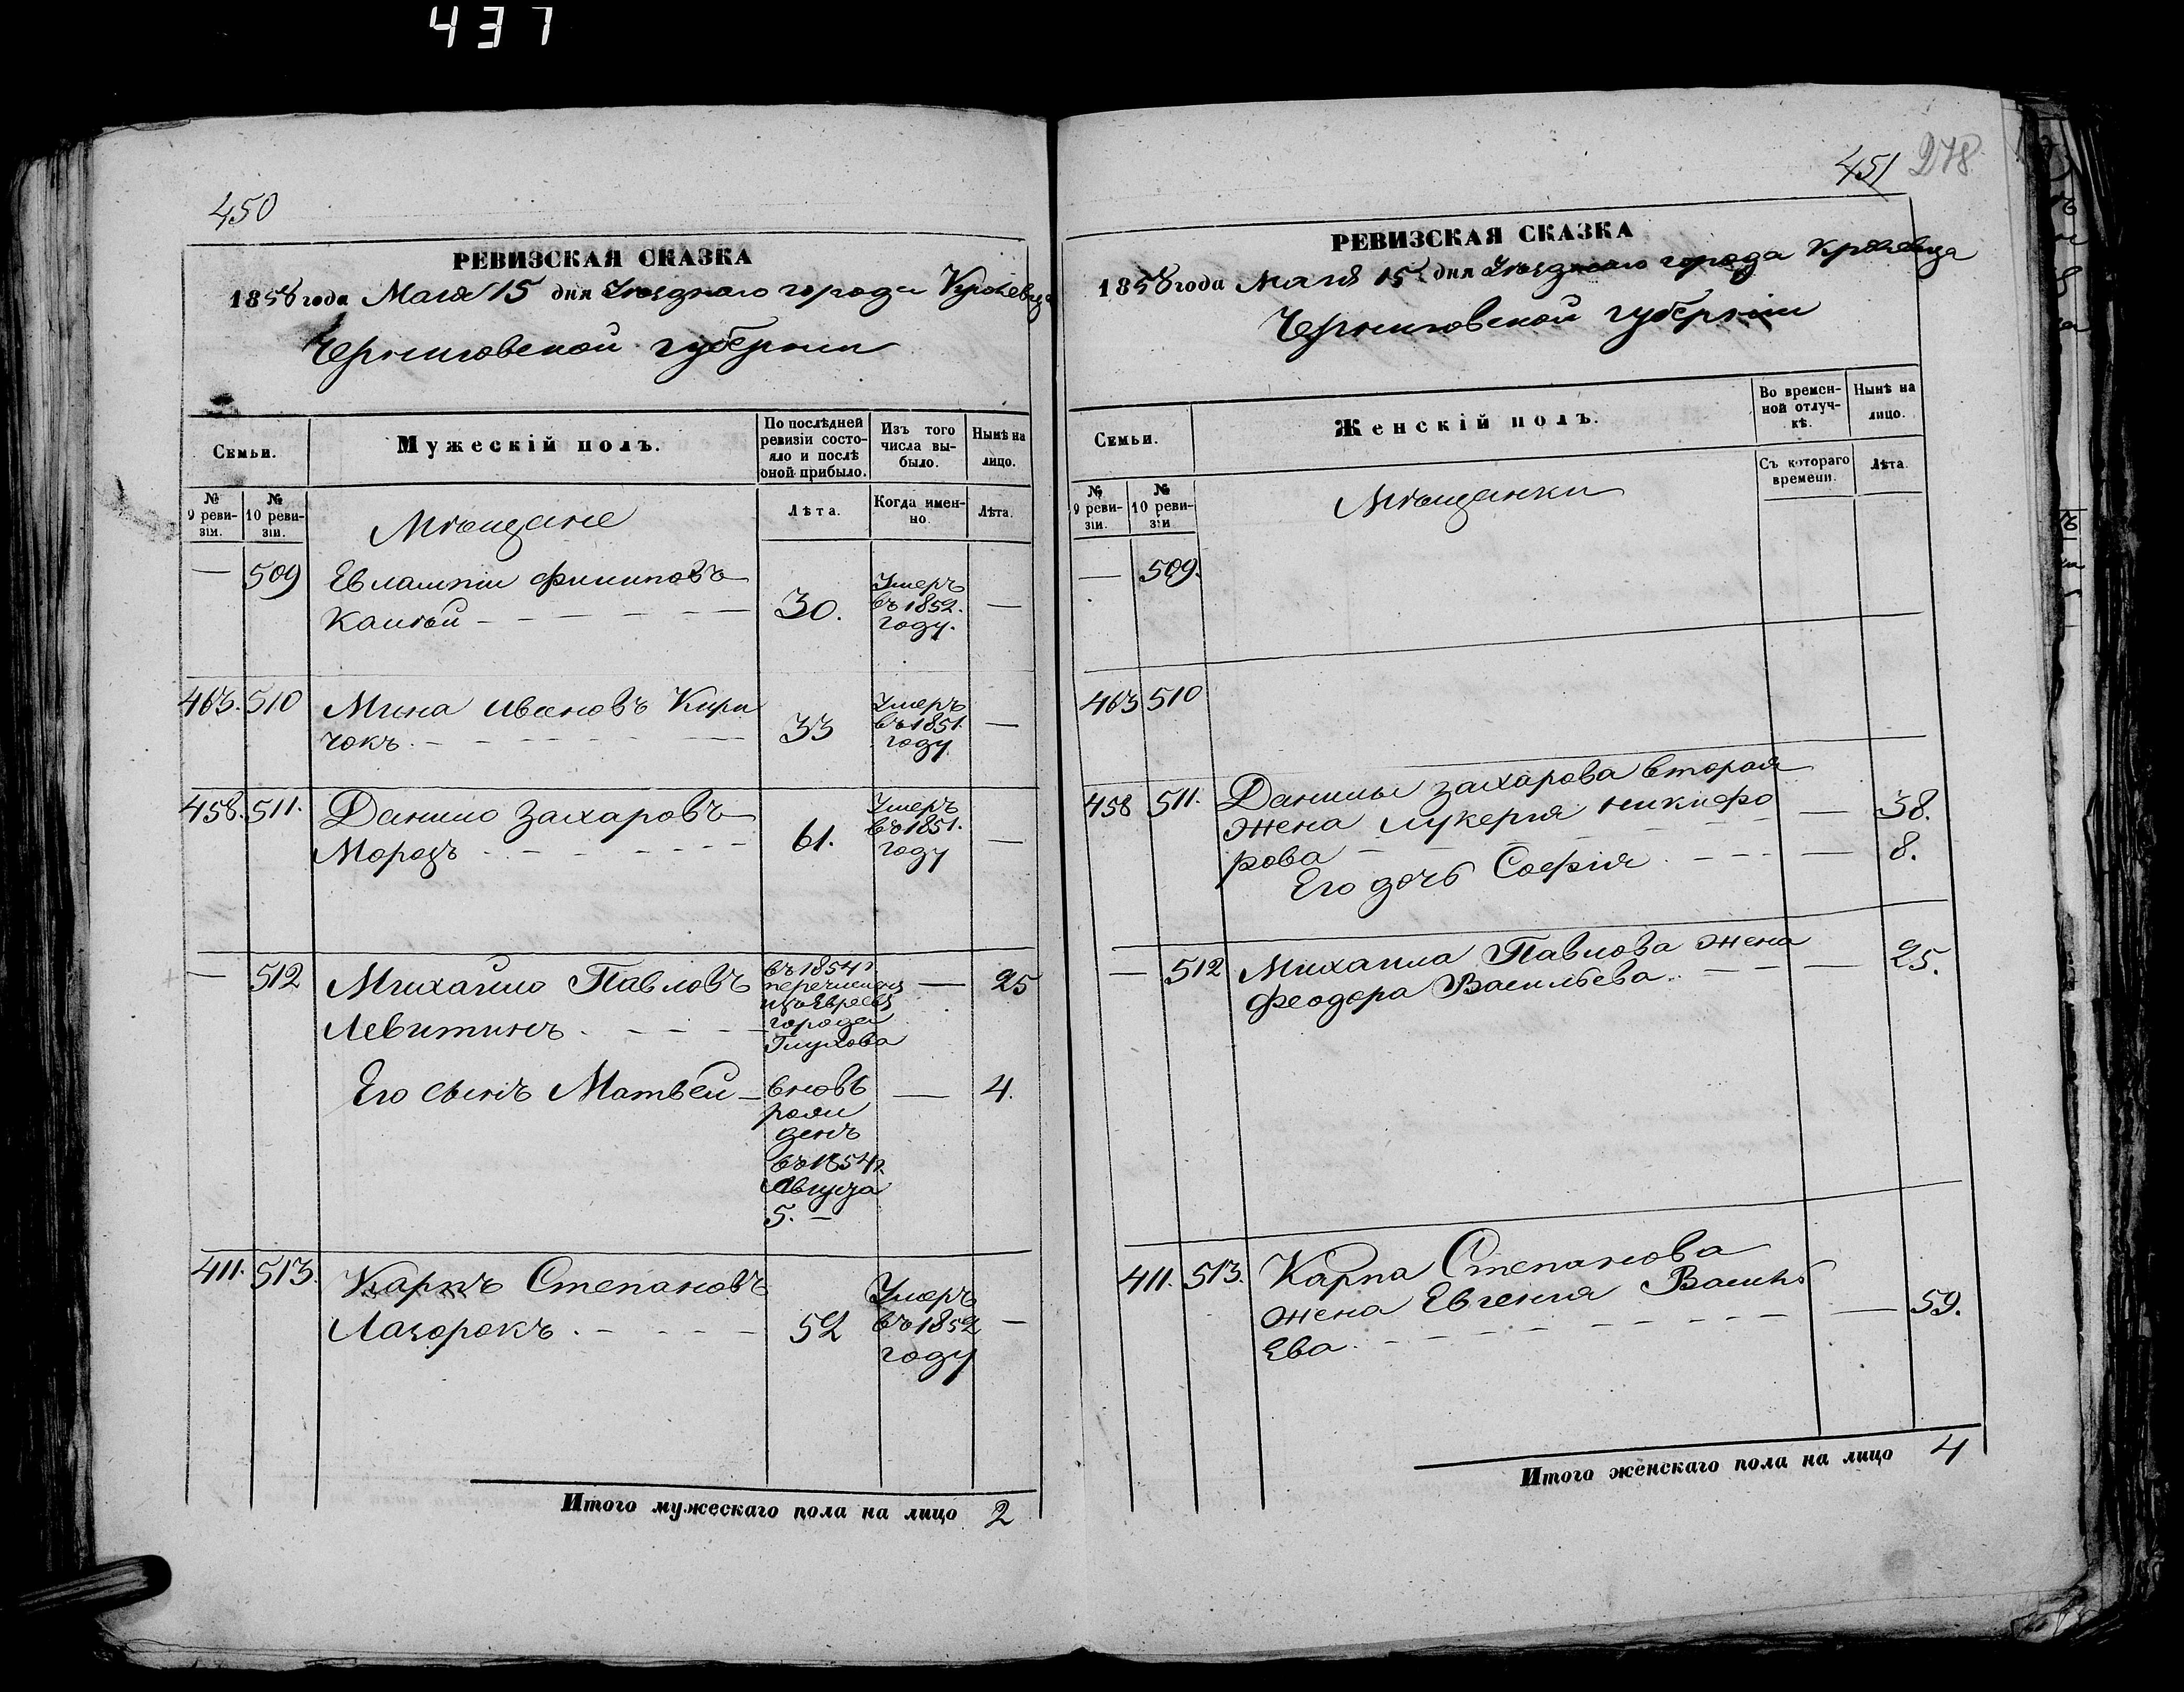 437
450
РЕВИЗСКАЯ СКАЗКА
1858 года Мая 15 дня Уѣзднаго города Кролевца
Черниговской губернiи
Семьи.
Мужескій полъ.
По послѣдней ревизіи состояло и послѣ оной прибыло.
Изъ того числа выбыло.
Нынѣ на лицо.
№ 9 ревизіи.
№ 10 ревизіи.
Мѣщане
Лѣта.
Когда именно.
Лѣта.
— 509 Евлампiй Филиповъ
Кашѣй 30. Умеръ въ 1852. году. —
463. 510 Мина Ивановъ Кири
чокъ. 33 Умеръ въ 1851. году —
458. 511. Данило Захаровъ
Морозъ 61. Умеръ въ 1851. году —
— 512 Михайло Павловъ
Левитинъ. въ 1854 г. перечисленъ изъ Евреевъ города Глухова — 25
Его сынъ Матвей — вновь рожденъ въ 1854 г. Августа 5. — — 4.
411. 513. Карпъ Степановъ
Лазорокъ. 52 Умеръ въ 1852 году —
Итого мужескаго пола на лицо 2
451 278
РЕВИЗСКАЯ СКАЗКА
1858 года Мая 15 дня Уѣзднаго города Кролевца
Черниговской губернiи
Семьи.
Женскій полъ.
Во временной отлучкѣ.
Нынѣ на лицо.
№ 9 ревизіи.
№ 10 ревизіи
Мѣщанки
Съ котораго времени.
Лѣта.
— 509.
463 510
458 511. Данилы Захарова вторая
жена Лукерiя Никифо
рова — 38.
Его дочь Софiя — 8.
— 512 Михаила Павлова жена
Феодора Васильева. — 25.
411. 513. Карпа Степанова
жена Евгенiя Василь
ева. — 59.
Итого женскаго пола на лицо 4